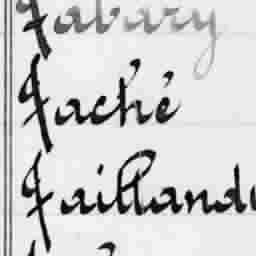 Tabary
Taché
Taillandi